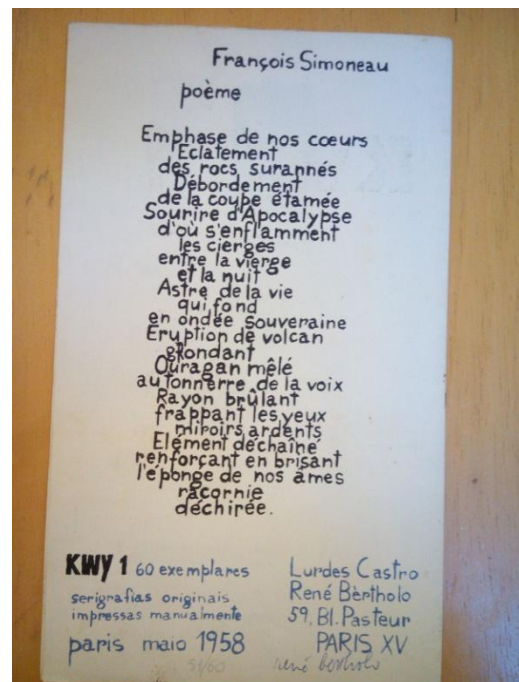 François Simoneau
poème
Emphase de nos cœurs
Eclatement
des rocs surannés
Débordement
de la coupe étamée
Sourire d'Apocalypse
d'où s'enflamment
les cierges
entre la vierge
et la nuit
Astre de la vie
qui fond
en ondée souveraine
Eruption de volcan
grondant
Ouragan mêlé
au tonnerre de la voix
Rayon brûlant
frappant les yeux
miroirs ardents
Elément déchaîné
renforçant en brisant
l'éponge de nos âmes
racornie
déchirée.
KWY 1 60 exemplares
serigrafias originais
impressas manualmente
paris maio 1958
51/60
Lurdes Castro
René Bèrtholo
59, Bl. Pasteur
PARIS XV
rené bertholo